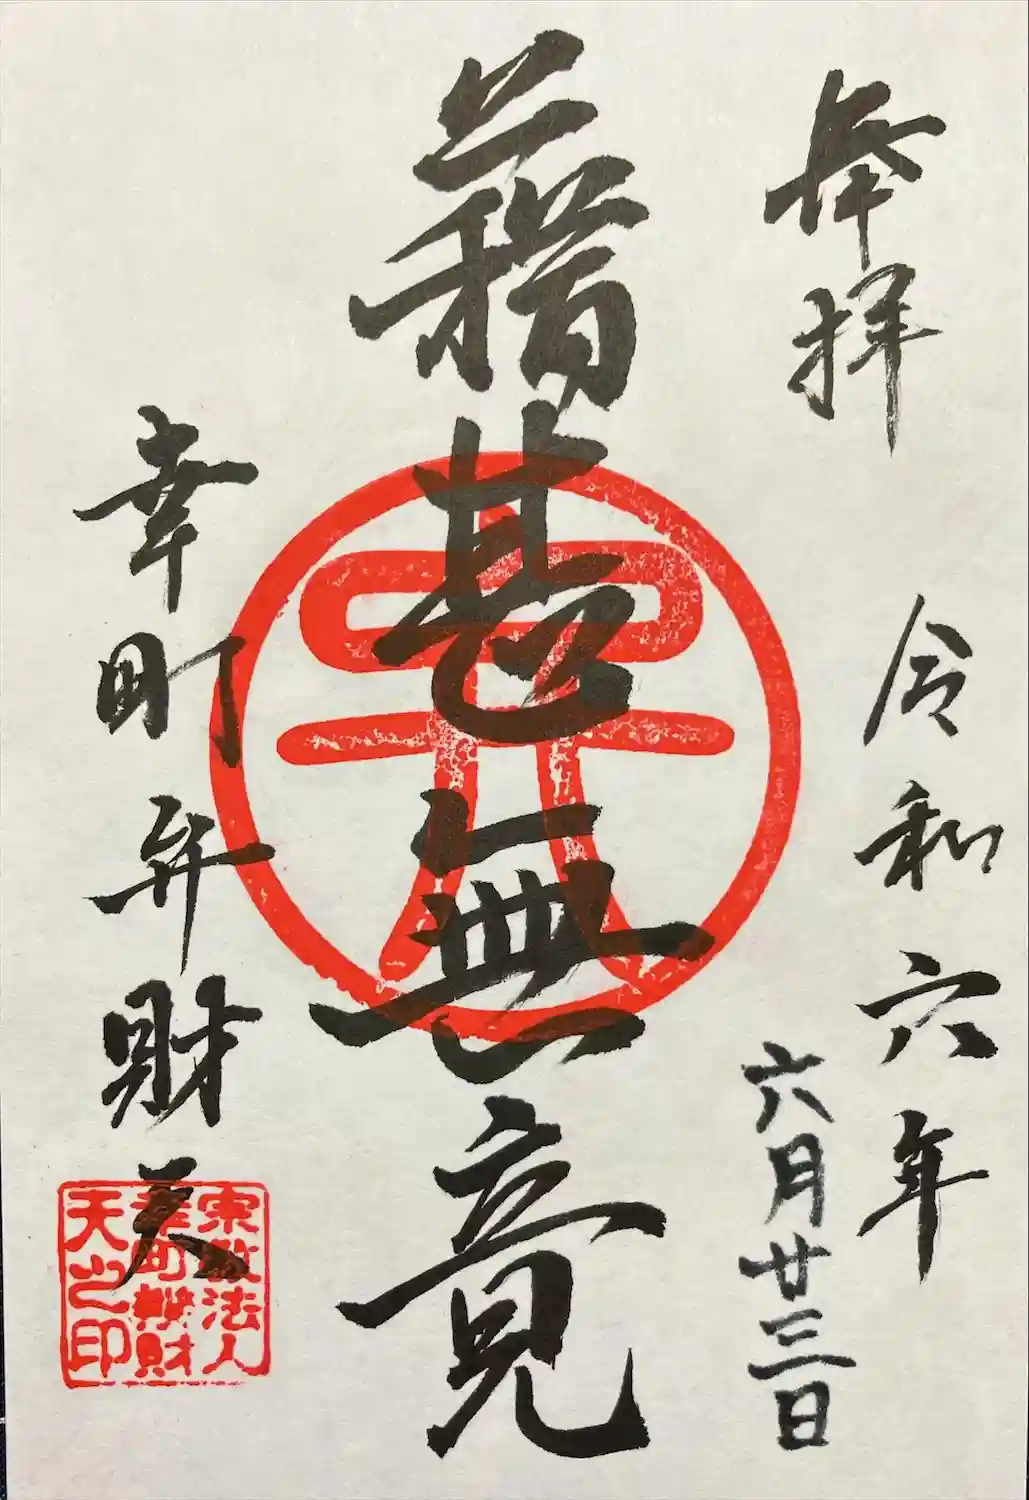 奉拝
令和六年
六月廿三日
藉甚無竟
幸町弁財天
宗教法人
幸町辨財
天之印